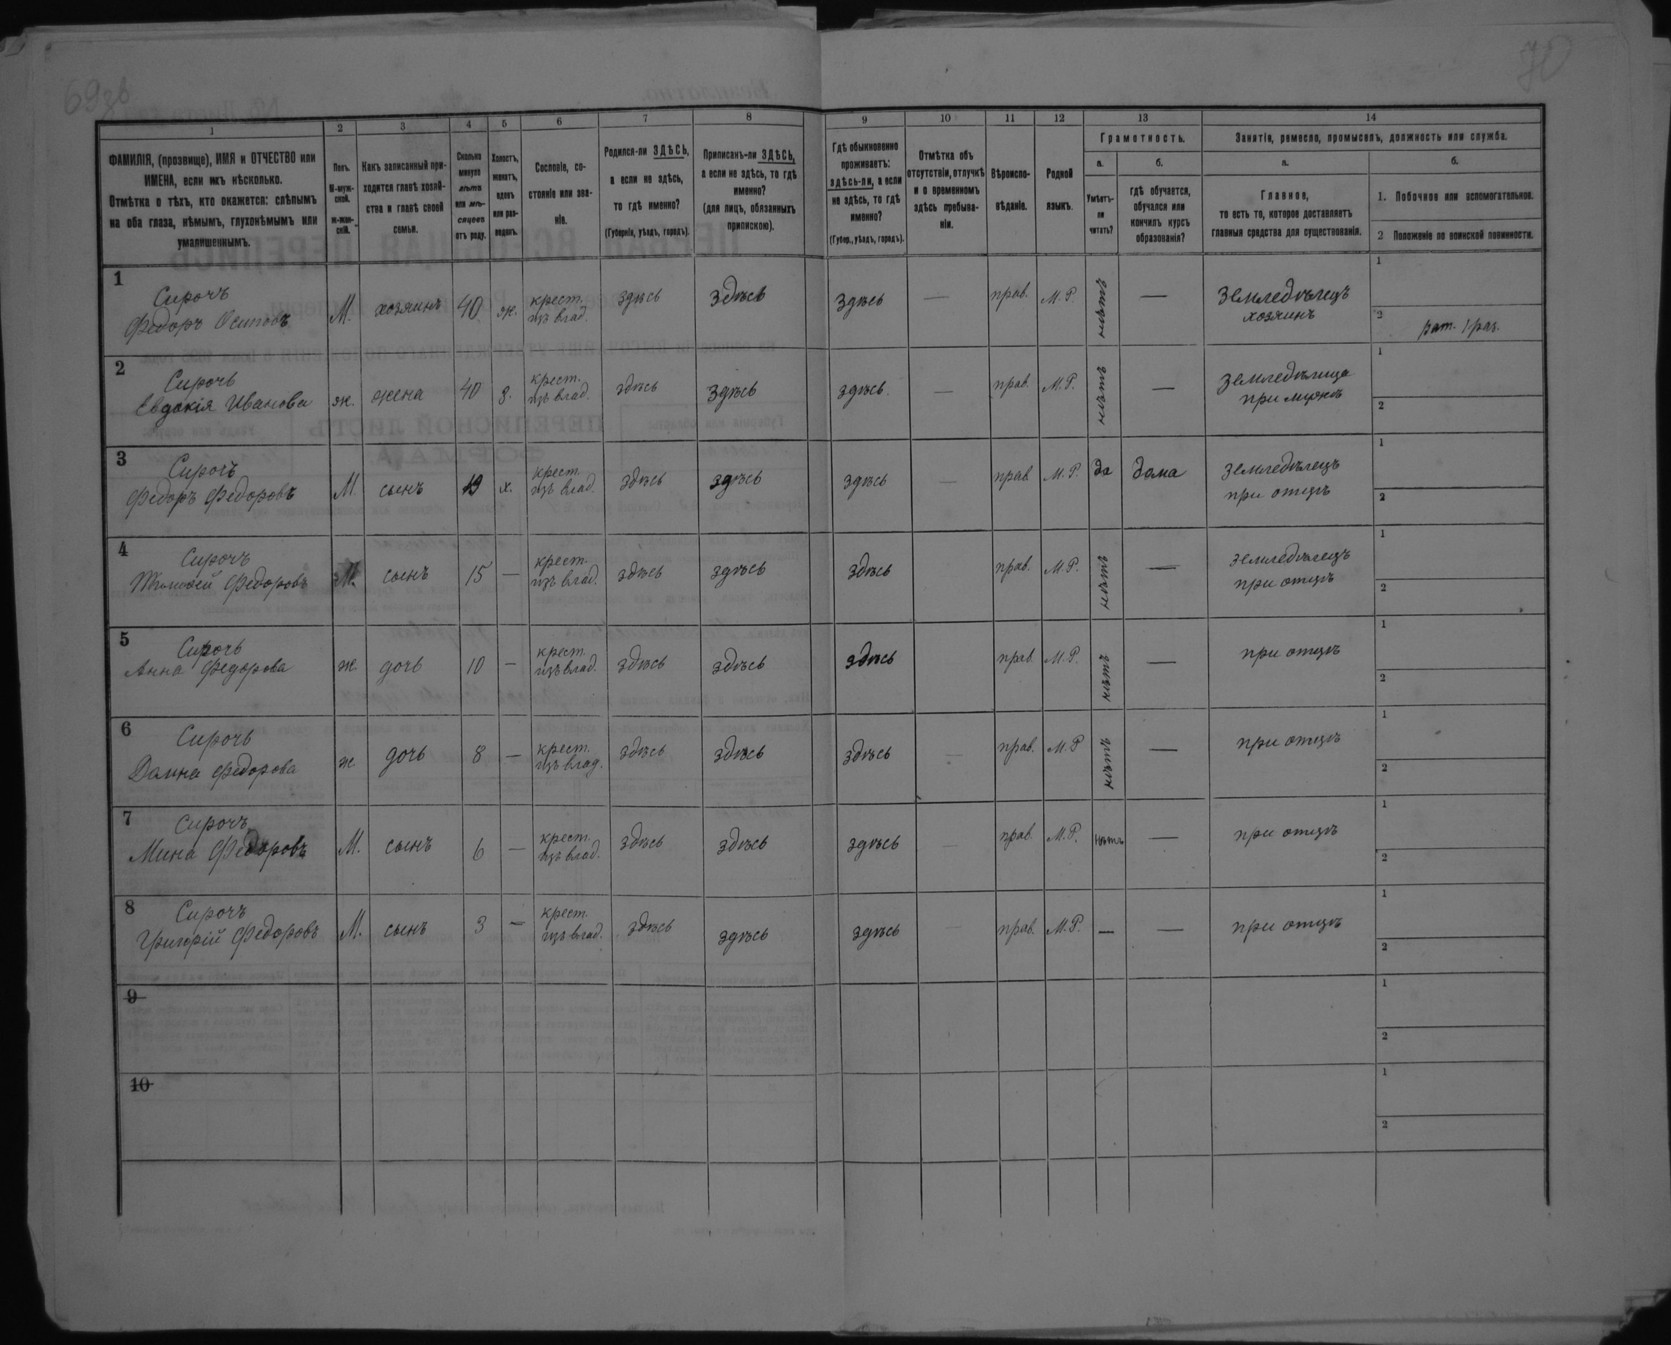 69об
70
1
2
3
4
5
6
7
8
9
10
11
12
13
14
ФАМИЛІЯ, (прозвище), ИМЯ и ОТЧЕСТВО или
ИМЕНА, если ихъ нѣсколько.
Отмѣтка о тѣхъ, кто окажется: слѣпымъ
на оба глаза, нѣмымъ, глухонѣмымъ или
умалишеннымъ.
Полъ.
М-муж-
ской.
ж-жен-
скій.
Какъ записанный при-
ходится главѣ хозяй-
ства и главѣ своей
семьи.
Сколько
минуло
лѣтъ
или мѣ-
сяцевъ
отъ роду.
Холостъ,
женатъ,
вдовъ
или раз-
веденъ.
Сословіе, со-
стояніе или зва-
ніе.
Родился-ли ЗДѢСЬ,
а если не здѣсь,
то гдѣ именно?
(Губернія, уѣздъ, городъ).
Приписанъ-ли ЗДѢСЬ,
а если не здѣсь, то гдѣ
именно?
(для лицъ, обязанныхъ
припискою).
Гдѣ обыкновенно
проживаетъ:
здѣсь-ли, а если
не здѣсь, то гдѣ
именно?
(Губер., уѣздъ, городъ).
Отмѣтка объ
отсутствіи, отлучкѣ
и о временномъ
здѣсь пребыва-
ніи.
Вѣроиспо-
вѣданіе.
Родной
языкъ.
Грамотность.
а.
Умѣетъ-
ли
читать?
б.
гдѣ обучается,
обучался или
кончилъ курсъ
образованія?
Занятія, ремесло, промыселъ, должность или служба.
а.
Главное,
то есть то, которое доставляетъ
главныя средства для существованія.
б.
1. Побочное или вспомогательное.
2 Положеніе по воинской повинности.
1
Сирочъ
Федоръ Осиповъ
М.
хозяинъ
40
ж.
крест.
изъ влад.
здѣсь
здѣсь
здѣсь
—
прав.
М.Р.
нѣтъ
—
Земледѣлецъ
хозяинъ
1
2
рат. 1 раз.
2
Сирочъ
Евдокія Иванова
ж.
жена
40
з.
крест.
изъ влад.
здѣсь
здѣсь
здѣсь
—
прав.
М.Р.
нѣтъ
—
Земледѣлица
при мужѣ
1
2
3
Сирочъ
Федоръ Федоровъ
М.
сынъ
19
х.
крест.
изъ влад.
здѣсь
здѣсь
здѣсь
—
прав.
М.Р.
да
дома
Земледѣлецъ
при отцѣ
1
2
4
Сирочъ
Федоровъ
М.
сынъ
15
—
крест.
изъ влад.
здѣсь
здѣсь
здѣсь
прав.
М.Р.
нѣтъ
—
Земледѣлецъ
при отцѣ
1
2
5
Сирочъ
Анна Федорова
ж.
дочь
10
—
крест.
изъ влад.
здѣсь
здѣсь
здѣсь
прав.
М.Р.
нѣтъ
—
при отцѣ
1
2
6
Сирочъ
Домна Федорова
ж
дочь
8
—
крест.
изъ влад.
здѣсь
здѣсь
здѣсь
—
прав.
М.Р
нѣтъ
—
при отцѣ
1
2
7
Сирочъ
Мина Федоровъ
М.
сынъ
6
—
крест.
изъ влад.
здѣсь
здѣсь
здѣсь
—
прав.
М.Р.
нѣтъ
—
при отцѣ
1
2
8
Сирочъ
Григорій Федоровъ
М.
сынъ
3
—
крест.
изъ влад.
здѣсь
здѣсь
здѣсь
—
прав.
М.Р.
—
—
при отцѣ
1
2
9
1
2
10
1
2